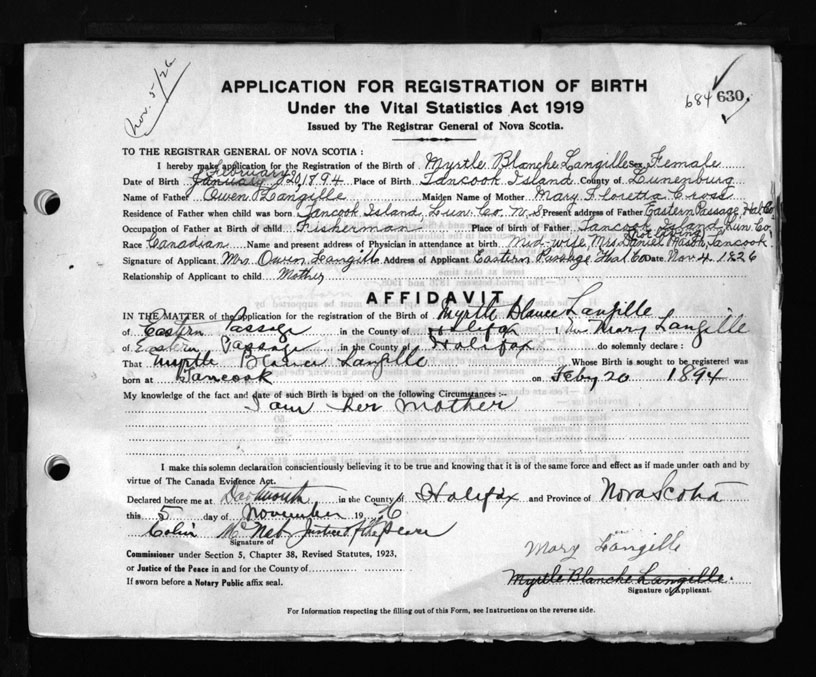 Nov. 5/26
684 630
APPLICATION FOR REGISTRATION OF BIRTH
Under the Vital Statistics Act 1919
Issued by The Registrar General of Nova Scotia.
TO THE REGISTRAR GENERAL OF NOVA SCOTIA :
I hereby make application for the Registration of the Birth of Myrtle Blanche Langille Sex Female
February
Date of Birth January 20, 1894 Place of Birth Tancook Island County of Lunenburg
Name of Father Owen Langille Maiden Name of Mother Mary Floretta Cross
Residence of Father when child was born Tancook Island, Lun. Co. N. S Present address of Father Eastern Passage, Hal Co
Occupation of Father at Birth of child Fisherman Place of birth of Father Tancook Island Lun. Co.
Race Canadian Name and present address of Physician in attendance at birth Mid-wife, Mrs. Daniel Mason, Tancook
Signature of Applicant Mrs. Owen Langille Address of Applicant Eastern Passage Hal Co Date Nov 4 1826
Relationship of Applicant to child Mother
AFFIDAVIT
IN THE MATTER of the Application for the registration of the Birth of Myrtle Blanee Langille
of Eastern Passage in the County of Halifax I, Mrs Mary Langille
of Eastern Passage in the County of Halifax do solemnly declare :
That Myrtle Blanee Langille Whose Birth is sought to be registered was
born at Tancook on Feby 20 1894
My knowledge of the fact and date of such Birth is based on the following Circumstances :–
I am her Mother
I make this solemn declaration conscientiously believing it to be true and knowing that it is of the same force and effect as if made under oath and by
virtue of The Canada Evidence Act.
Declared before me at Dartmouth in the County of Halifax and Province of Nova Scotia
this 5 day of November 1926
Colin McNab Justice of the Peace
Signature of
Commissioner under Section 5, Chapter 38, Revised Statutes, 1923,
or Justice of the Peace in and for the County of
If sworn before a Notary Public affix seal.
Mary Langille
Myrtle Blanche Langille.
Signature of Applicant.
For Information respecting the filling out of this Form, see Instructions on the reverse side.